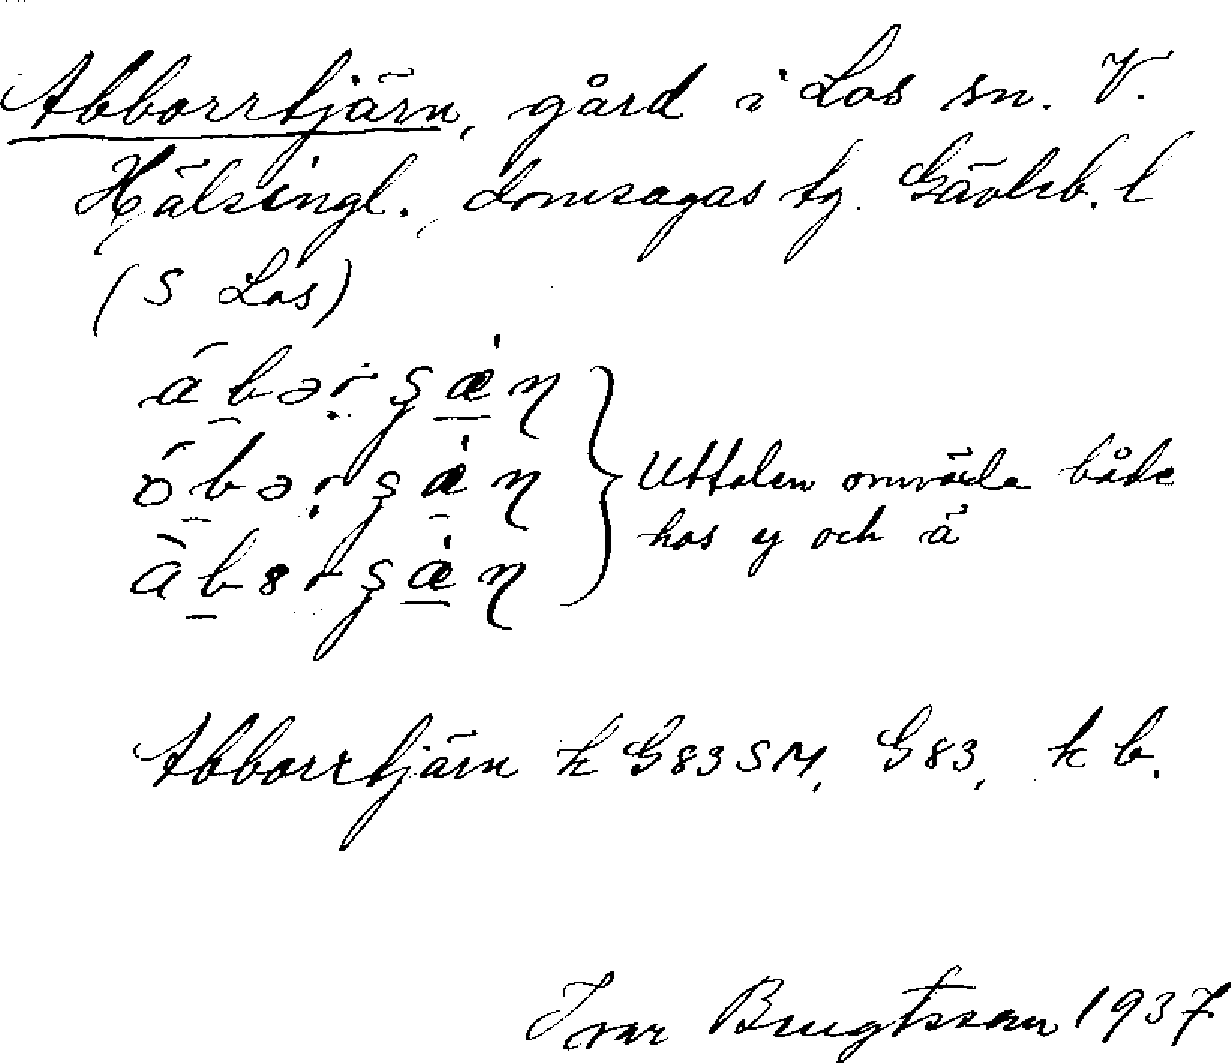 Abborrtjärn, gård i Los sn. V.
Hälsingl., domsagas tg. Gävleb. l
(S Los)
ábərʂæ̀ɳ
óbərʂæ̀ɳ
àbərʂæ̀ɳ
Uttalen omväxla både
hos y och ä
Abborrtjärn k G83SM, G83, k b.
Ivar Bengtsson 1937